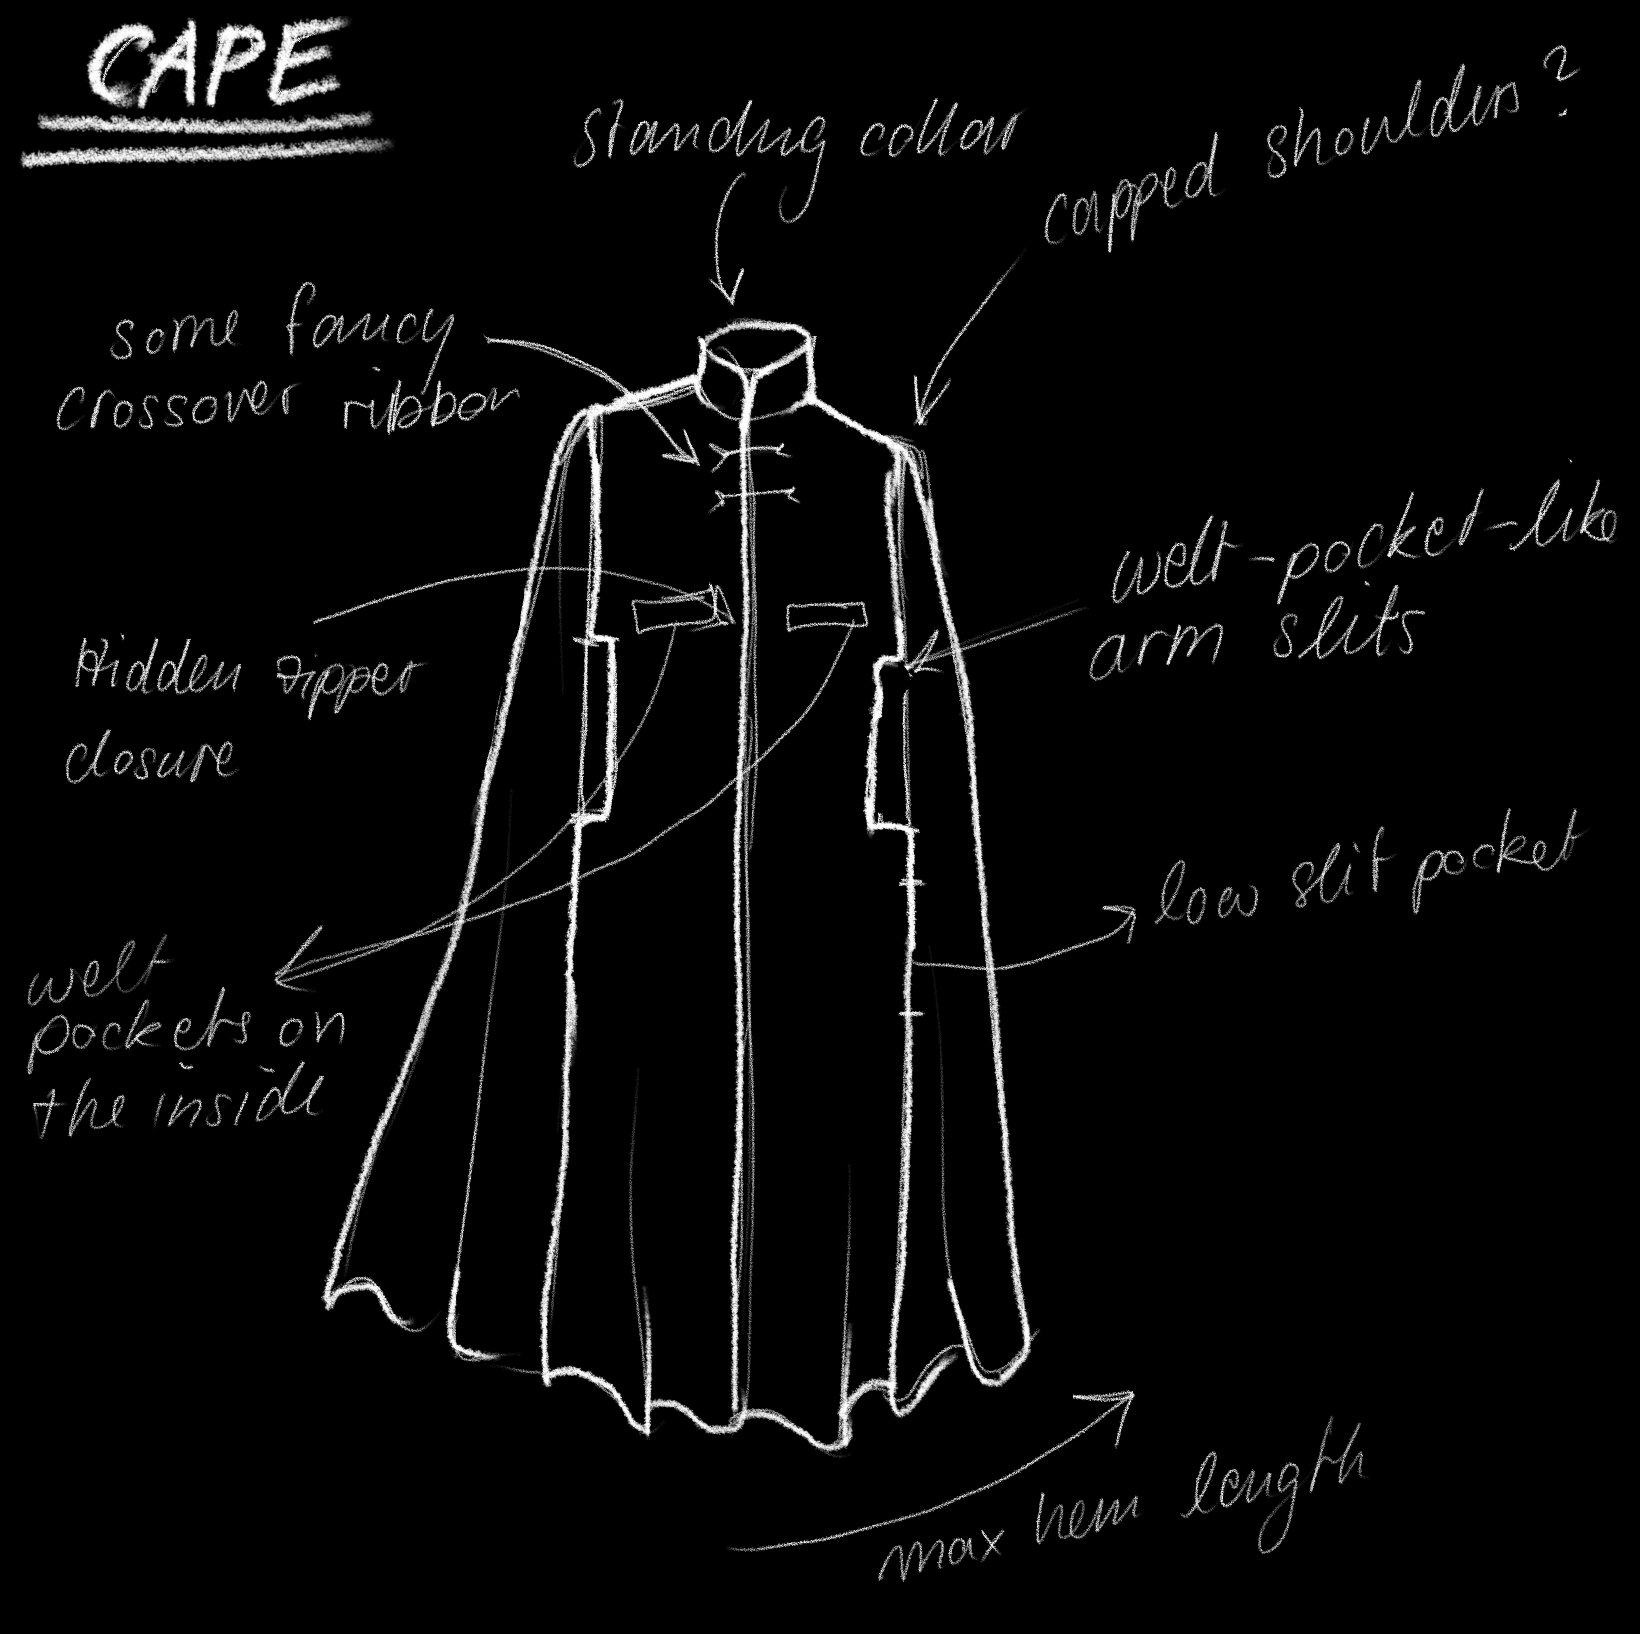 CAPE
standing collar
capped shoulders?
some fancy
crossover ribbon
welt-pocket-like
arm slits
Hidden zipper
closure
low slit pocket
welt
pockets on
the inside
max hem length